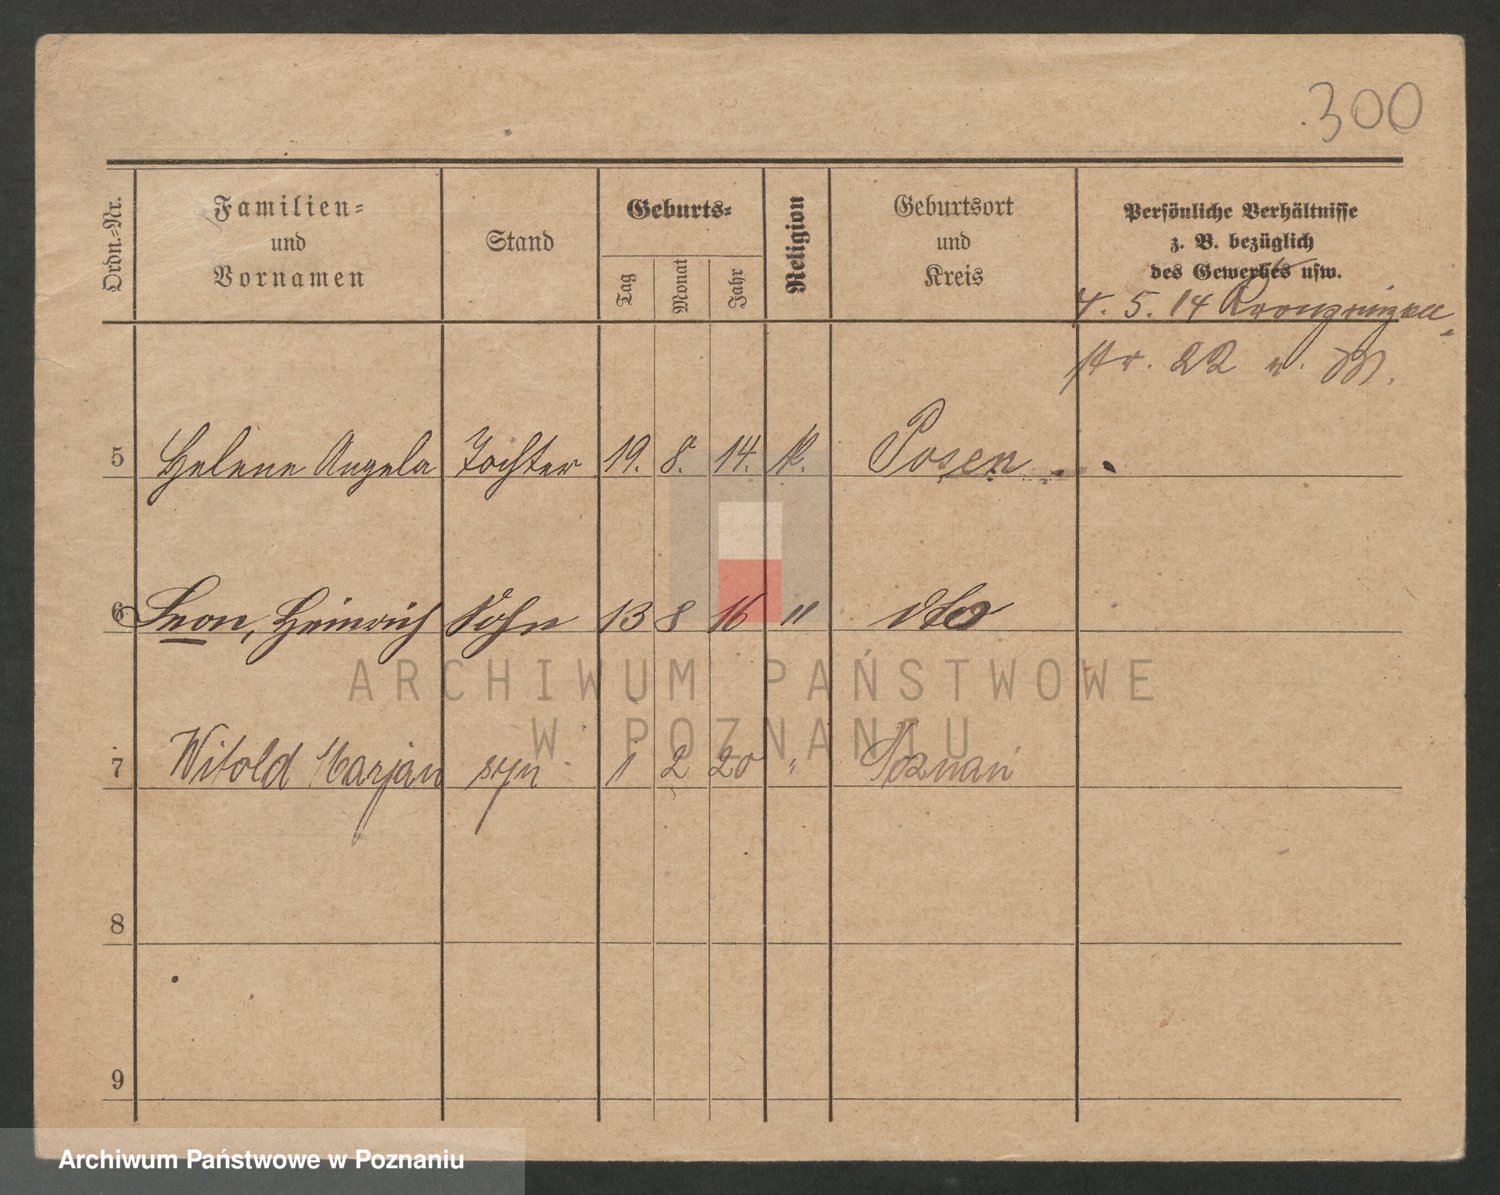 300
Ordn.-Nr.
Familien-
und
Vornamen
Stand
Geburts-
Tag
Monat
Jahr
Religion
Geburtsort
und
Kreis
Persönliche Verhältnisse
z. B. bezüglich
des Gewerbes usw.
4. 5. 14 Kronprinzen-
str. 22 v. M.
5 Helene Angela Tochter 19. 8. 14. k. Posen
6 Leon, Heinrich Sohn 13 8 16 " dto
7 Witold Marjan syn 1 2 20 " Poznań
8
9
ARCHIWUM PAŃSTWOWE
W POZNANIU
Archiwum Państwowe w Poznaniu